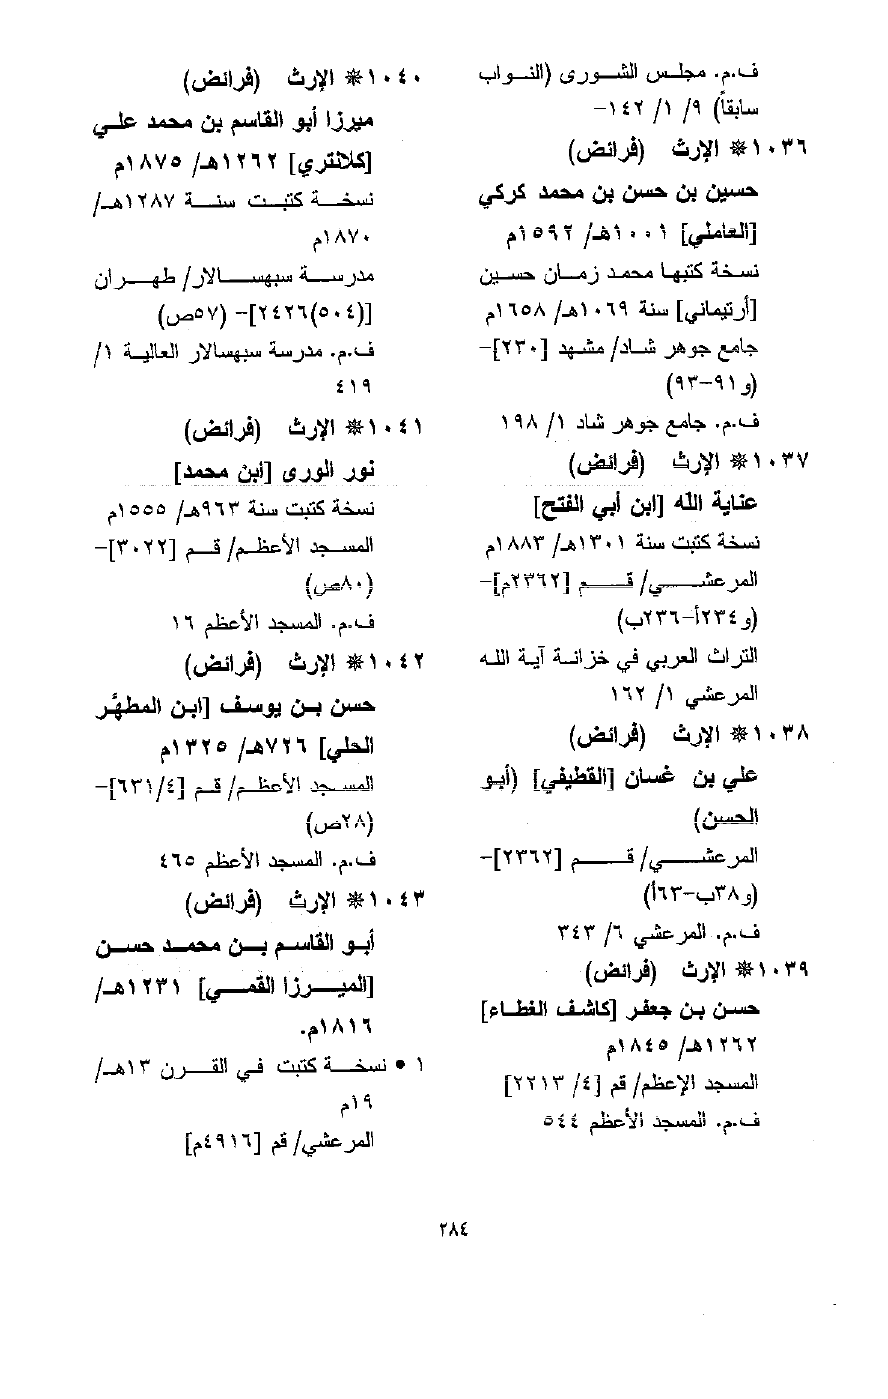 ف.م. مجلس الشورى (النواب
سابقاً) ٩/ ١/ ١٤٢-
١٠٣٦ ❊ الإرث (فرائض)
حسين بن حسن بن محمد كركي
[العاملي] ١٠٠١هـ/ ١٥٩٢م
نسخة كتبها محمد زمان حسين
[أرتيماني] سنة ١٠٦٩هـ/ ١٦٥٨م
جامع جوهر شاد/ مشهد [٢٣٠]-
(و٩١-٩٣)
ف.م. جامع جوهر شاد ١/ ١٩٨
١٠٣٧ ❊ الإرث (فرائض)
عناية الله [ابن أبي الفتح]
نسخة كتبت سنة ١٣٠١هـ/ ١٨٨٣م
المرعشي/ قم [٢٣٦٢م]-
(و٢٣٤أ-٢٣٦ب)
التراث العربي في خزانة آية الله
المرعشي ١/ ١٦٢
١٠٣٨ ❊ الإرث (فرائض)
علي بن غسان [القطيفي] (أبو
الحسن)
المرعشي/ قم [٢٣٦٢]-
(و٣٨ب-٦٣أ)
ف.م. المرعشي ٦/ ٣٤٣
١٠٣٩ ❊ الإرث (فرائض)
حسن بن جعفر [كاشف الغطاء]
١٢٦٢هـ/ ١٨٤٥م
المسجد الإعظم/ قم [٤/ ٢٢١٣]
ف.م. المسجد الأعظم ٥٤٤
١٠٤٠ ❊ الإرث (فرائض)
ميرزا أبو القاسم بن محمد علي
[كلانتري] ١٢٦٢هـ/ ١٨٧٥م
نسخة كتبت سنة ١٢٨٧هـ/
١٨٧٠م
مدرسة سبهسالار/ طهران
[(٥٠٤)٢٤٢٦]- (٥٧ص)
ف.م. مدرسة سبهسالار العالية ١/
٤١٩
١٠٤١ ❊ الإرث (فرائض)
نور الورى [ابن محمد]
نسخة كتبت سنة ٩٦٣هـ/ ١٥٥٥م
المسجد الأعظم/ قم [٣٠٢٢]-
(٨٠ص)
ف.م. المسجد الأعظم ١٦
١٠٤٢ ❊ الإرث (فرائض)
حسن بن يوسف [ابن المطهَّر
الحلي] ٧٢٦هـ/ ١٣٢٥م
المسجد الأعظم/ قم [٦٣١/٤]-
(٢٨ص)
ف.م. المسجد الأعظم ٤٦٥
١٠٤٣ ❊ الإرث (فرائض)
أبو القاسم بن محمد حسن
[الميرزا القمي] ١٢٣١هـ/
١٨١٦م.
١ • نسخة كتبت في القرن ١٣هـ/
١٩م
المرعشي/ قم [٤٩١٦م]
٢٨٤